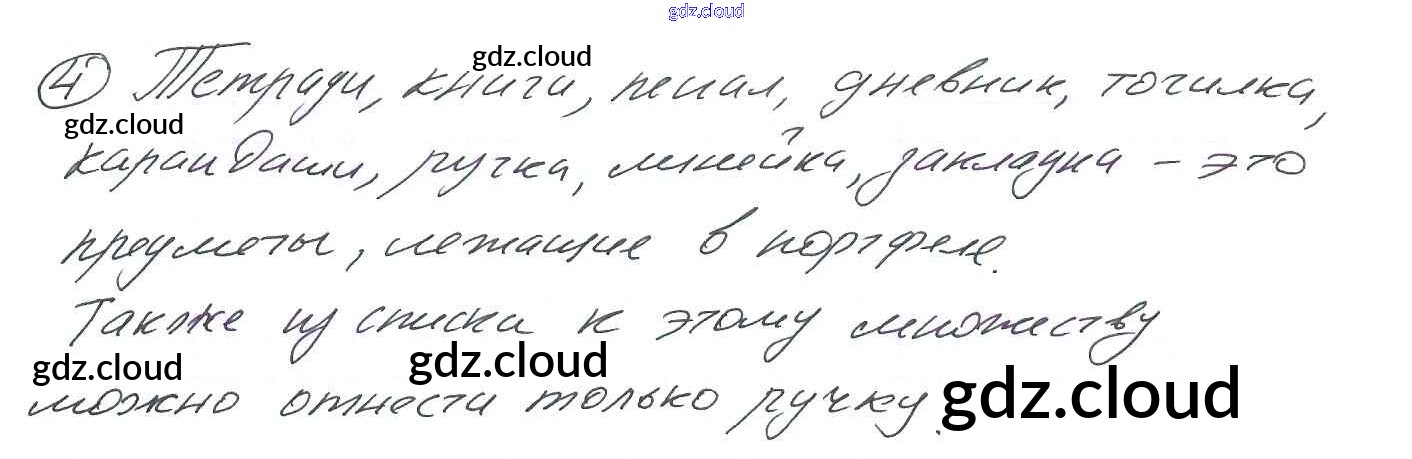 gdz.cloud
gdz.cloud
④ Тетради, книги, пенал, дневник, точилка,
gdz.cloud
карандаши, ручка, линейка, закладка – это
предметы, лежащие в портфеле.
Также из списка к этому множеству
gdz.cloud gdz.cloud
можно отнести только ручку.
gdz.cloud